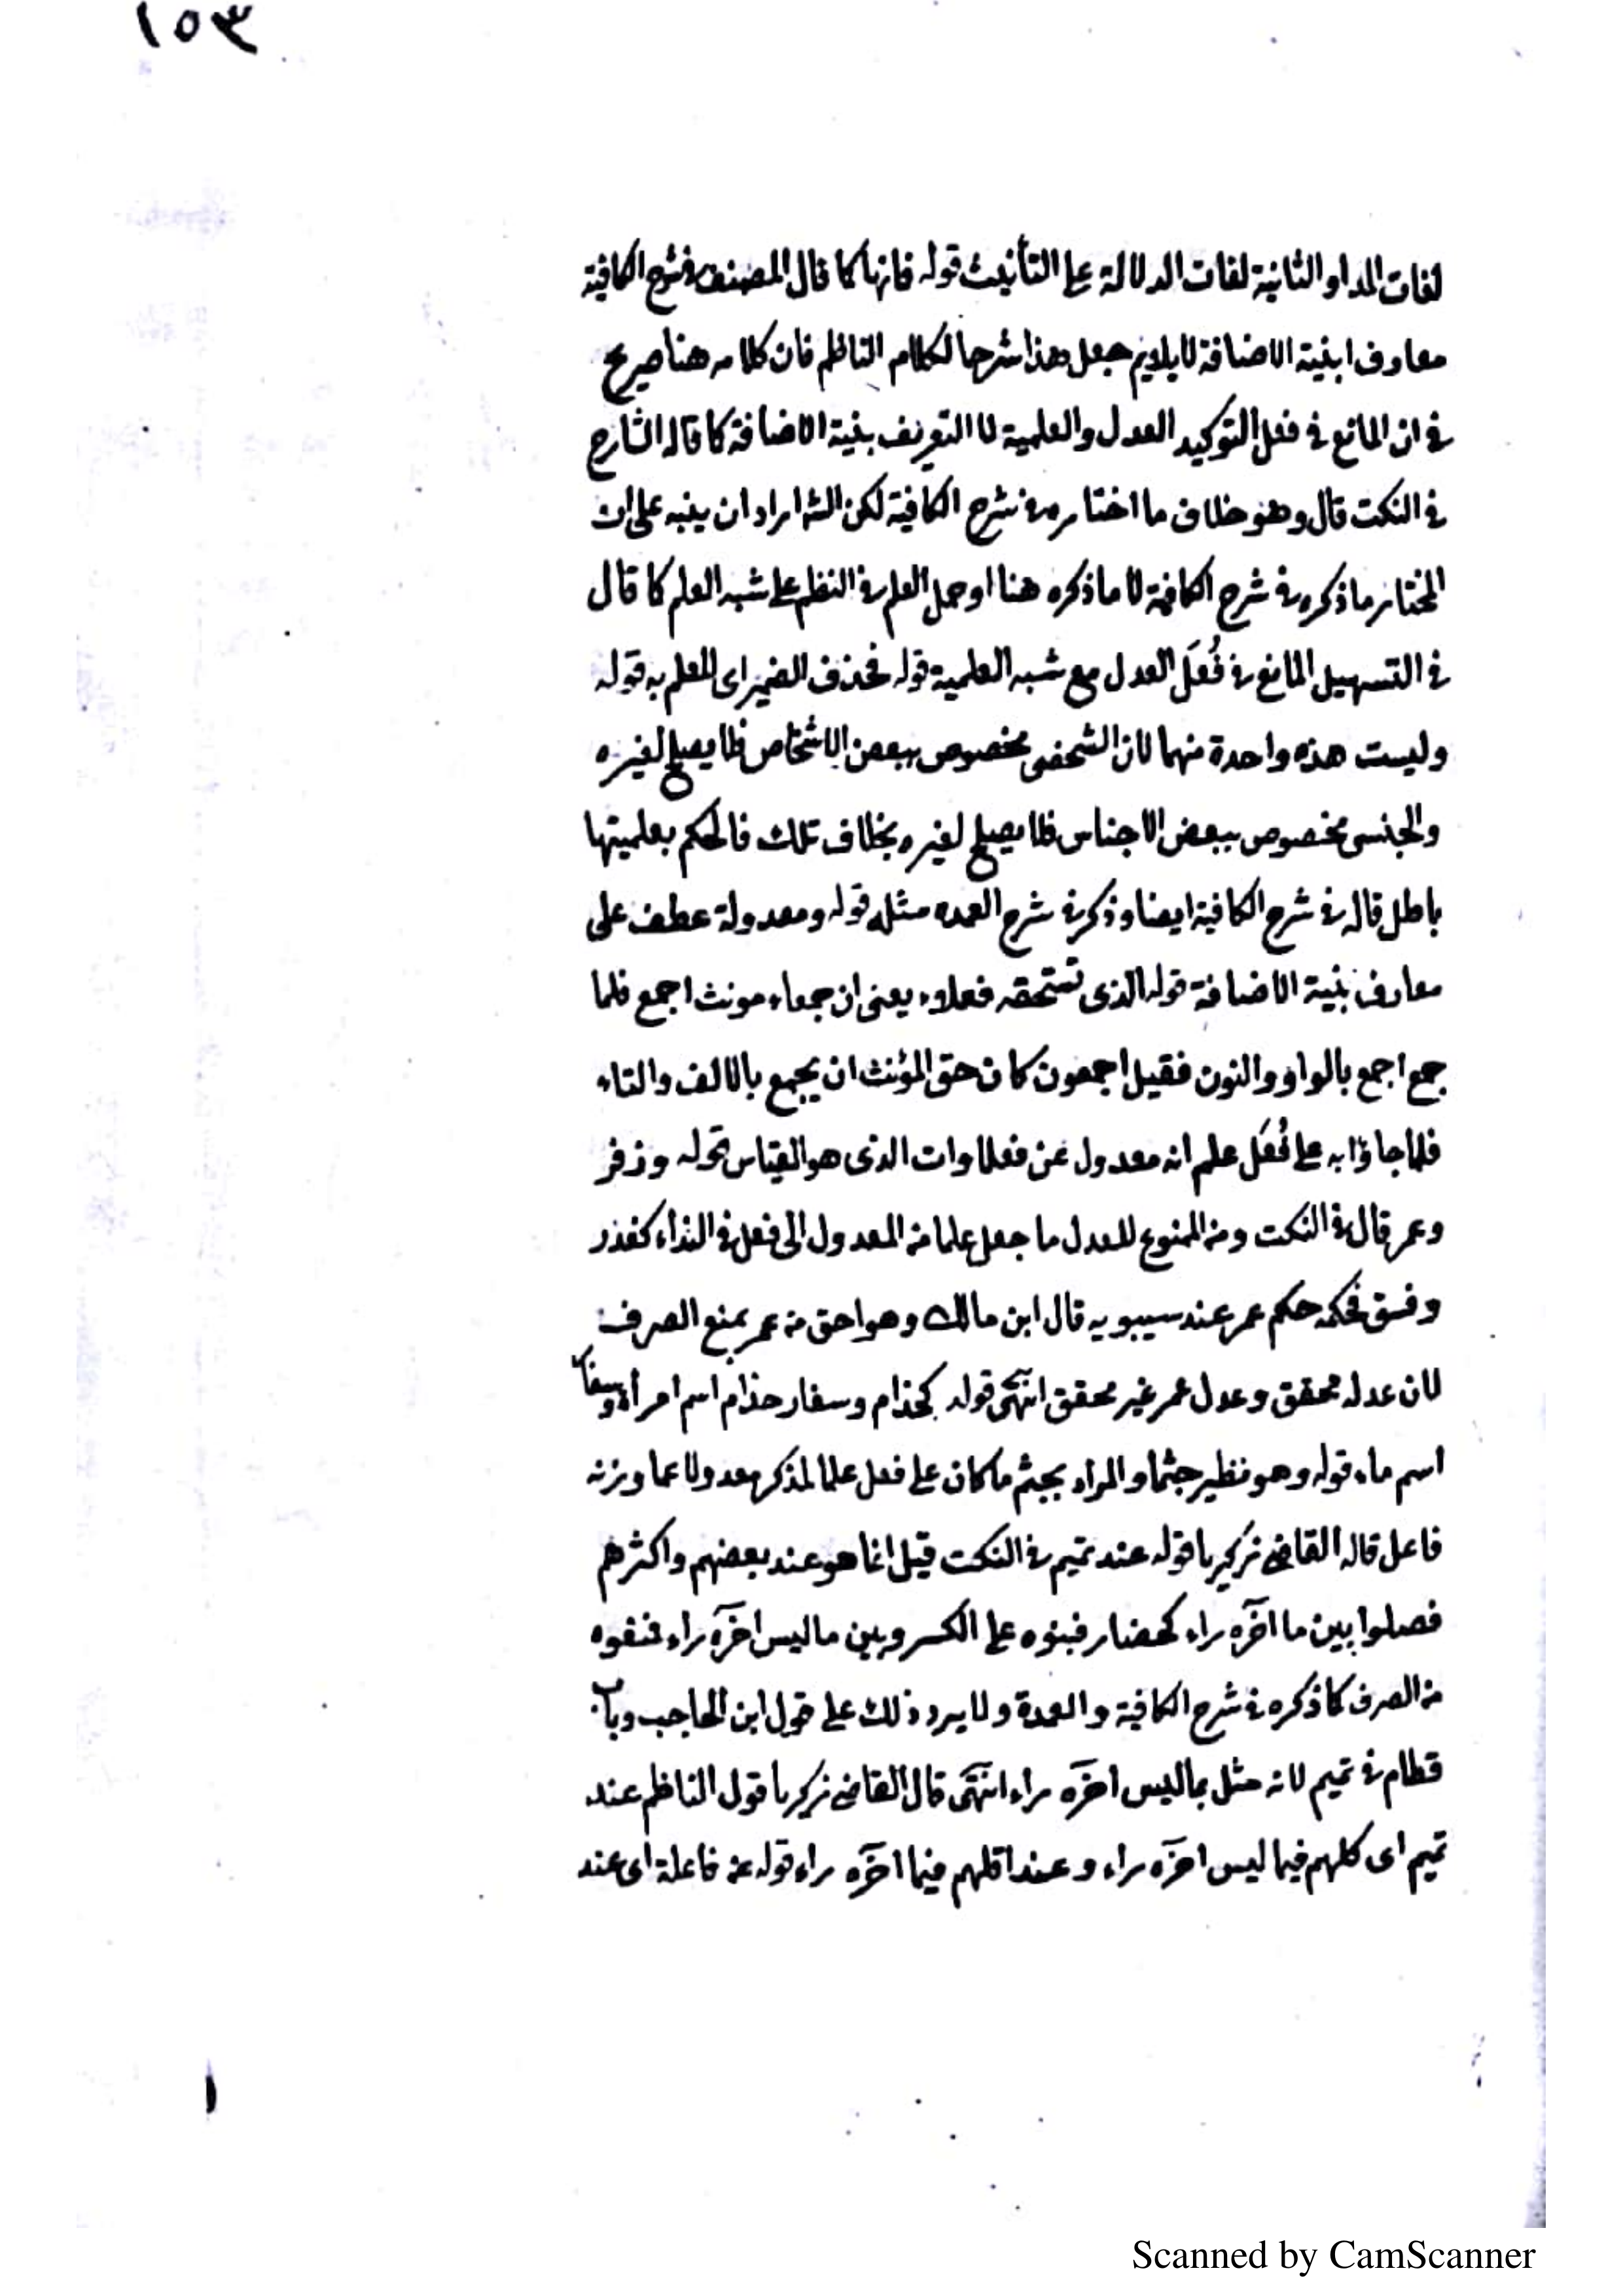 ١٥٣
لفات المد او الثانية لفات الدلالة على التأنيث قوله فانها كما قال المصنف في شرح الكافية
معارف ابنية الاضافة لا يلايم جعل هذا شرحا لكلام الناظم فان كلامه هنا صريح
في ان المانع في فعل التوكيد العدل والعلمية لا التعريف بنية الاضافة كما قاله الشارح
في النكت قال وهو خلاف ما اختاره في شرح الكافية لكن الش اراد ان ينبه على ان
المختار ما ذكره في شرح الكافية لا ما ذكره هنا او حمل العلم في النظم على شبه العلم كما قال
في التسهيل المانع في فُعَل العدل مع شبه العلمية قوله فحذف الضمير اى للعلم به قوله
وليست هذه واحدة منهما لان الشخصى مخصوص ببعض الاشخاص فلا يصلح لغيره
والجنسى مخصوص ببعض الاجناس فلا يصلح لغيره بخلاف تلك فالحكم بعلميتها
باطل قاله في شرح الكافية ايضا وذكر في شرح العمده مثله قوله ومعدولة عطف على
معارف بنية الاضافة قوله الذى تستحقه فعلاء يعنى ان جمعاء مونث اجمع فلما
جمع اجمع بالواو والنون فقيل اجمعون كان حق المؤنث ان يجمع بالالف والتاء
فلما جاؤا به على فُعَل علم انه معدول عن فعلاوات الذى هو القياس قوله وزفر
وعمر قال في النكت ومن الممنوع للعدل ما جعل علما من المعدول الى فعل في النداء كغدر
وفسق فحكمه حكم عمر عند سيبويه قال ابن مالك وهو احق من عمر بمنع الصرف
لان عدله محقق وعدل عمر غير محقق انتهى قوله كحذام وسفار حذام اسم امرأة وسفار
اسم ماء قوله وهو نظير جثما والمراد بجثم ما كان على فعل علما لمذكر معدولا عما وزنه
فاعل قاله القاضى زكريا قوله عند تميم في النكت قيل انما هو عند بعضهم واكثرهم
فصلوا بين ما آخره راء كحضار فبنوه على الكسر وبين ما ليس آخره راء فمنعوه
من الصرف كما ذكره في شرح الكافية والعمدة ولا يرد ذلك على قول ابن الحاجب وباب
قطام في تميم لانه مثل بما ليس آخره راء انتهى قال القاضى زكريا قول الناظم عند
تميم اى كلهم فيما ليس آخره راء وعند اقلهم فيما آخره راء قوله عن فاعلة اى عند
١
Scanned by CamScanner